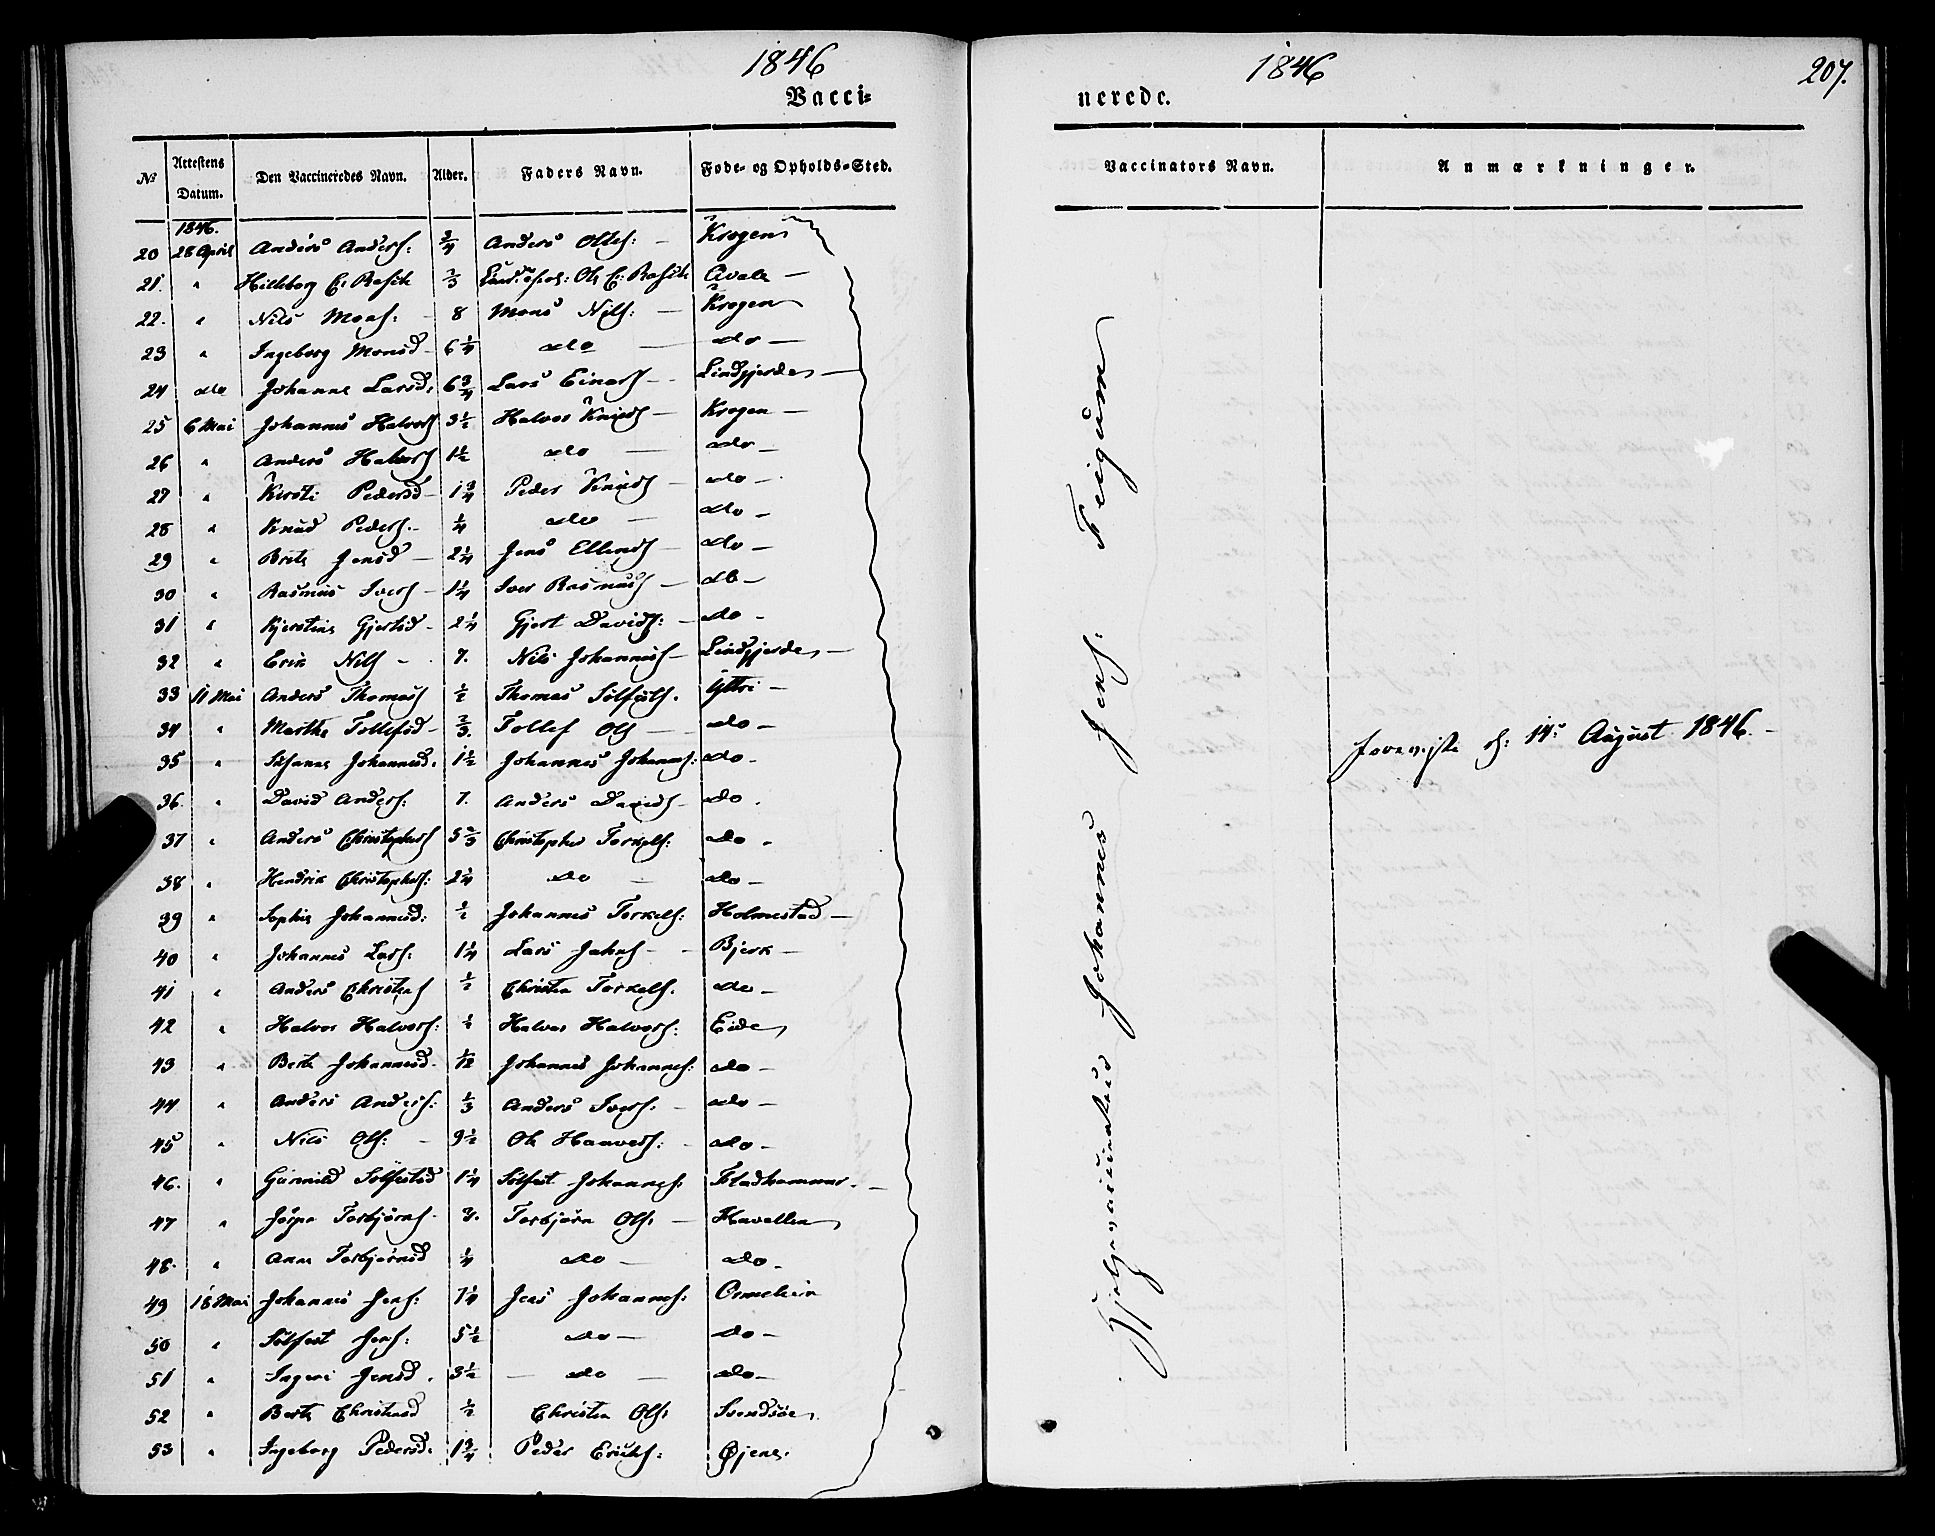 1846
Vacci-
1846
nerede.
207.
№ Attestens Datum. Den Vaccineredes Navn. Alder. Faders Navn. Føde- og Opholds-Sted.
Vaccinators Navn. Anmærkninger.
1846.
20 28 April Anders Anders: 3/4 Anders Olles: — Krogen
21. " Hilleborg 2/3 Avale —
22. " Nils Mons: 8 Mons Nils: — Krogen
23 " Ingeborg Monsd 6 1/4 do — do —
24 do Johanne Larsd: 6 3/4 Lars Einars — Lindfjerde —
25 6 Mai Johannes Halvors 3 1/2 Halvor Knuds — Krogen —
26 " Anders Halvors 1 1/2 do — do —
27 " Kirsti Pedersd — 1 3/4 Peder Knuds — do —
28 " Knud Peders. — 1/4 do — do —
29 " Brite Jensd — 2 1/4 Jens Ellends — do —
30 " Rasmus Ivers — 1 1/4 Iver Rasmus — do —
31 " Kjerstine Gjertsd — 2 1/4 Gjert Davids: — do —
32 " Erik Nils — 7. Nils Johannes — Lindfjerde —
33 11 Mai Anders Thomas 1/2 Thomas Sølfests. Yttri —
34 " Marthe Tollefsd — 2/3. Tollef Ols — do —
35 " Susanne Johannesd. 1 1/2 Johannes Johannes: do —
36. " David Anders: 7. Anders Davids — do.
37 " Anders Christophers 5 2/3 Christopher Torkels: do.
38 " Hendrik Christophers: 2 1/4 do — do —
39 " Sophie Johannesd: 1/2 Johannes Torkels: Holmestad —
40 " Johannes Lars: 1 1/4 Lars Jakobs — Bjerk —
41 " Anders Christens 1/2 Christen Torkels. do —
42 " Halvor Halvors: 1/2 Halvor Halvors: Eide
43 " Berte Johannesd. 1/12 Johannes Johannes: do —
44 " Anders Anders: 1/3 Anders Ivers: — do —
45 " Nils Ols: — 9 1/2 Ole Haavers: — do —
46. " Gunnild Sølfestsd 1 1/4 Sølfest Johannes: Fladhammer —
47 " Torbjørns — 3. Torbjørn Ols: — Havellen
48. " Anne Torbjørnsd 1/4 do — do.
49 18 Mai Johannes Jens: 7 1/4 Jens Johannes: Ormelien
50 " Sølfest Jens: 5 1/2 do — do —
51 " Ingeri Jensd. 3 1/2 — do — do —
52 " Berte Christensd 1/2 Christen Ols: Svendsøe
53 " Ingeborg Pedersd: 1 3/4 Peder Eriks: Øjene.
Hjelpevaccinateur Johannes Jens: Feigum
foreviste d: 14: August 1846. —